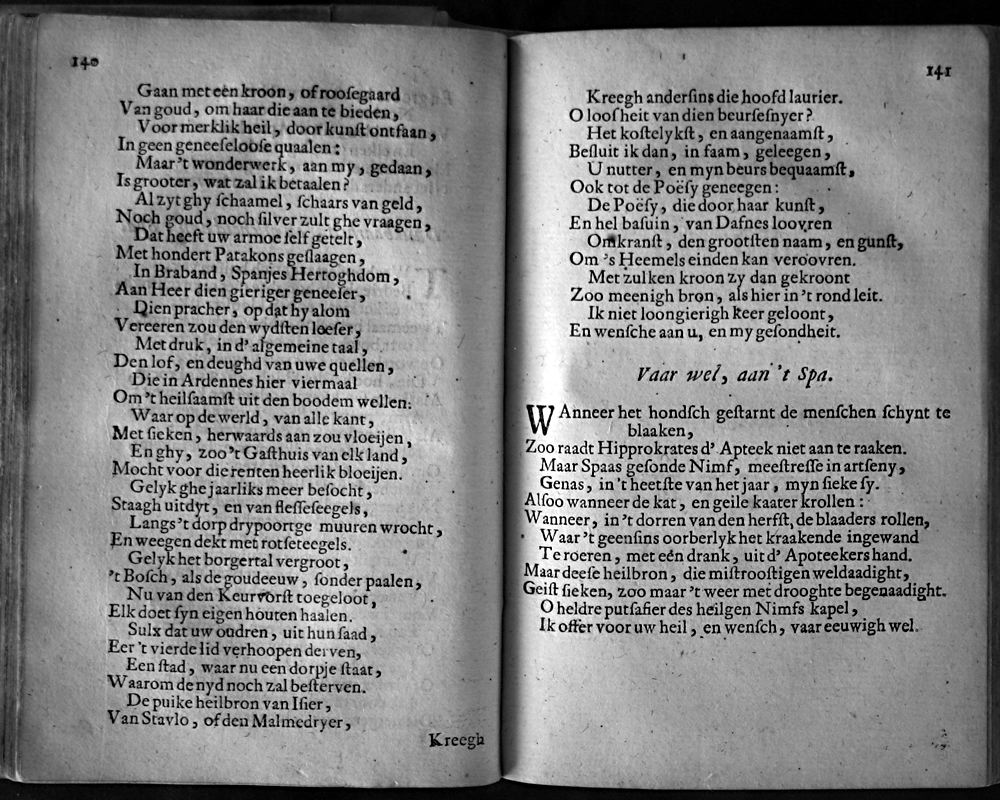 140
Gaan met een kroon, of rooſegaard
Van goud, om haar die aan te bieden,
Voor merklik heil, door kunſt ontfaan,
In geen geneeſelooſe quaalen:
Maar 't wonderwerk, aan my, gedaan,
Is grooter, wat zal ik betaalen?
Al zyt ghy ſchaamel, ſchaars van geld,
Noch goud, noch ſilver zult ghe vraagen,
Dat heeft uw armoe ſelf getelt,
Met hondert Patakons geſlaagen,
In Braband, Spanjes Hertoghdom,
Aan Heer dien gieriger geneeſer,
Dien pracher, op dat hy alom
Vereeren zou den wydſten loeſer,
Met druk, in d' algemeine taal,
Den lof, en deughd van uwe quellen,
Die in Ardennes hier viermaal
Om 't heilſaamſt uit den boodem wellen:
Waar op de werld, van alle kant,
Met ſieken, herwaards aan zou vloeijen,
En ghy, zoo 't Gaſthuis van elk land,
Mocht voor die renten heerlik bloeijen.
Gelyk ghe jaarliks meer beſocht,
Staagh uitdyt, en van fleſſeſeegels,
Langs 't dorp drypoortge muuren wrocht,
En weegen dekt met rotſeteegels.
Gelyk het borgertal vergroot,
't Boſch, als de goudeeuw, ſonder paalen,
Nu van den Keurvorſt toegeloot,
Elk doet ſyn eigen houten haalen.
Sulx dat uw oudren, uit hun ſaad,
Eer 't vierde lid verhoopen derven,
Een ſtad, waar nu een dorpje ſtaat,
Waarom de nyd noch zal beſterven.
De puike heilbron van Iſier,
Van Stavlo, of den Malmedryer,
Kreegh
141
Kreegh anderſins die hoofd laurier.
O loofheit van dien beurſeſnyer?
Het koſtelykſt, en aangenaamſt,
Beſluit ik dan, in faam, geleegen,
U nutter, en myn beurs bequaamſt,
Ook tot de Poëſy geneegen:
De Poëſy, die door haar kunſt,
En hel baſuin, van Dafnes loovren
Omkranſt, den grootſten naam, en gunſt,
Om 's Heemels einden kan veroovren.
Met zulken kroon zy dan gekroont
Zoo meenigh bron, als hier in 't rond leit.
Ik niet loongierigh keer geloont,
En wenſche aan u, en my geſondheit.
Vaar wel, aan 't Spa.
WAnneer het hondſch geſtarnt de menſchen ſchynt te
blaaken,
Zoo raadt Hipprokrates d' Apteek niet aan te raaken.
Maar Spaas geſonde Nimf, meeſtreſſe in artſeny,
Genas, in 't heetſte van het jaar, myn ſieke ſy.
Alſoo wanneer de kat, en geile kaater krollen:
Wanneer, in 't dorren van den herfſt, de blaaders rollen,
Waar 't geenſins oorberlyk het kraakende ingewand
Te roeren, met eén drank, uit d' Apoteekers hand.
Maar deeſe heilbron, die miſtrooſtigen weldaadight,
Geiſt ſieken, zoo maar 't weer met drooghte begenaadight.
O heldre putſafier des heilgen Nimfs kapel,
Ik offer voor uw heil, en wenſch, vaar eeuwigh wel.